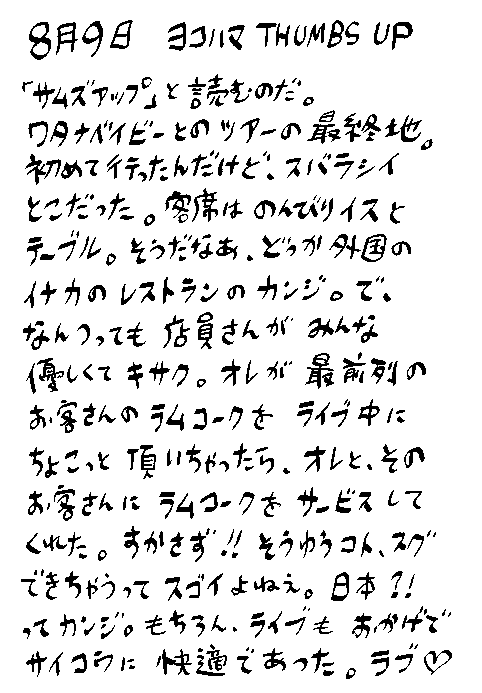 8月9日 ヨコハマ THUMBS UP
「サムズアップ」と読むのだ。
ワタナベイビーとのツアーの最終地。
初めて行ったんだけど、スバラシイ
とこだった。客席はのんびりイスと
テーブル。そうだなあ、どっか外国の
イナカのレストランのカンジ。で、
なんつっても店員さんがみんな
優しくてキサク。オレが最前列の
お客さんのラムコークをライブ中に
ちょこっと頂いちゃったら、オレと、その
お客さんにラムコークをサービスして
くれた。すかさず!!そうゆうコト、スグ
できちゃうってスゴイよねぇ。日本?!
ってカンジ。もちろん、ライブもおかげで
サイコウに快適であった。ラブ♡